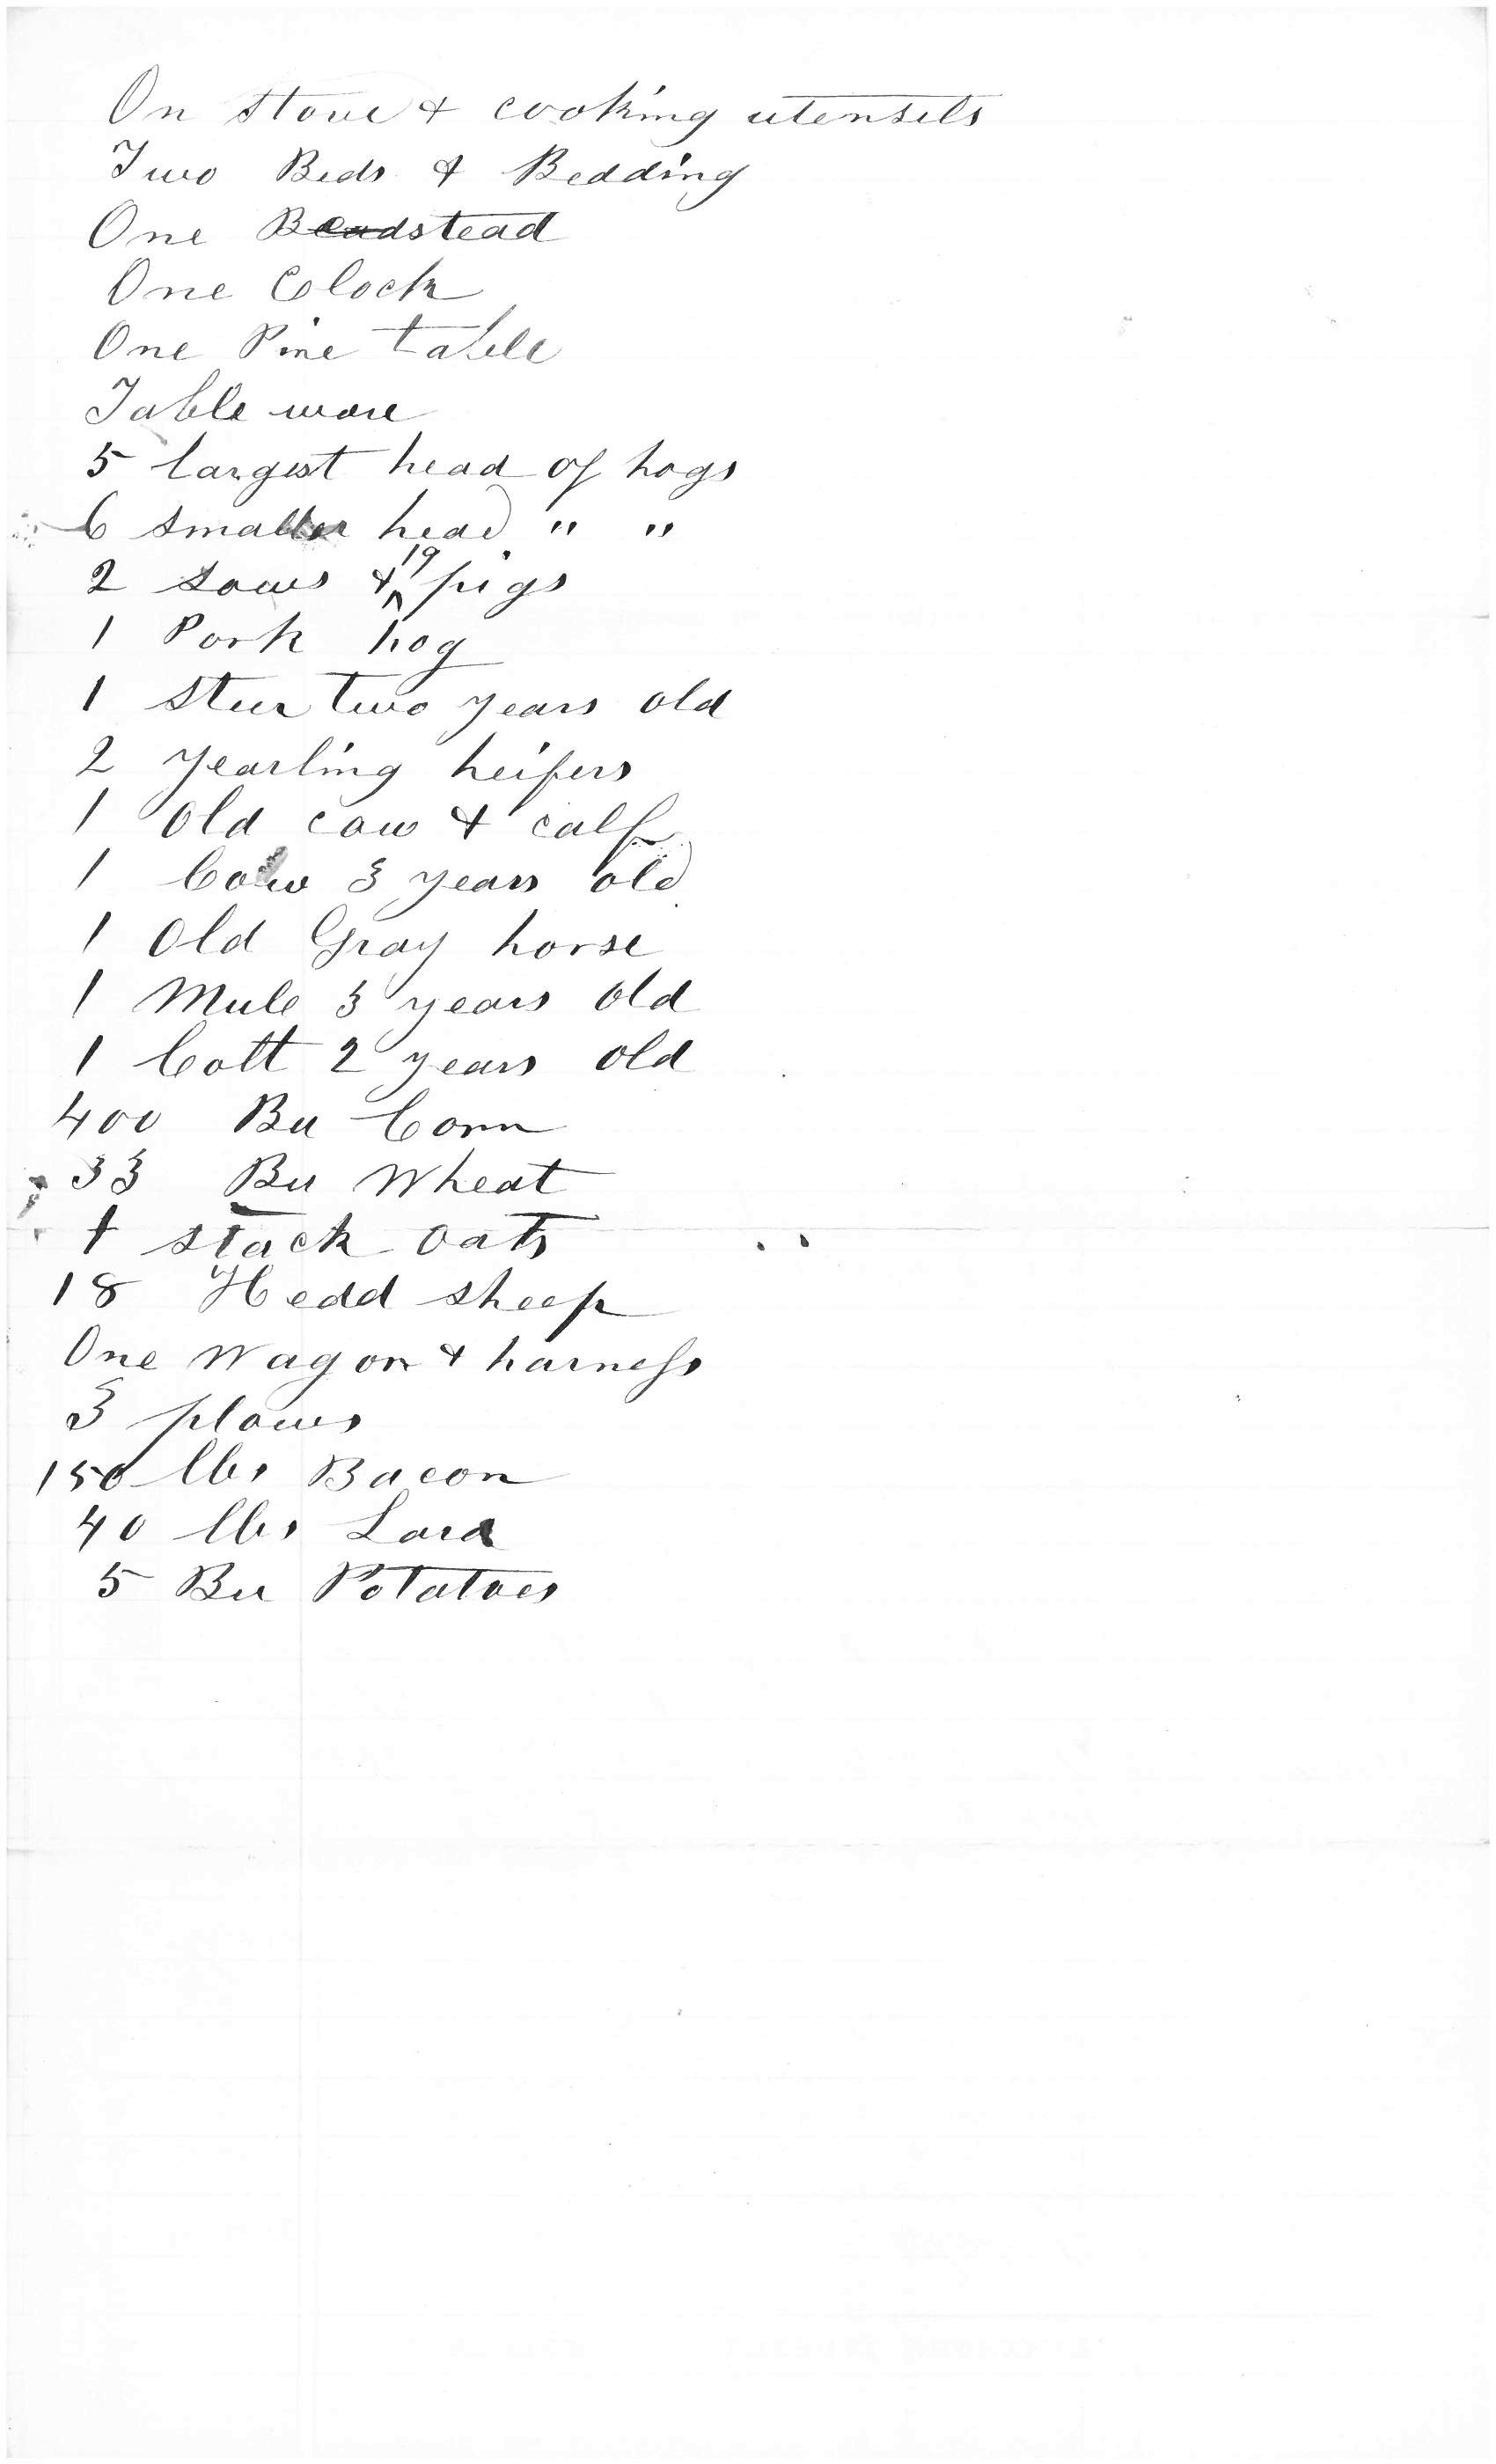 On stove & cooking utensils
Two Beds & Bedding
One Beadstead
One Clock
One Pine table
Table ware
5 largest head of hogs
6 smaller head " "
2 sows & 19 pigs
1 Pork hog
1 steer two years old
2 yearling heifers
1 Old cow & calf
1 Cow 3 years old
1 Old Gray horse
1 Mule 3 years old
1 Colt 2 years old
400 Bu Corn
33 Bu Wheat
1 stack oats
18 Hedd sheep
One Wagon & harness
3 plows
150 lbs Bacon
40 lbs Lard
5 Bu Potatoes